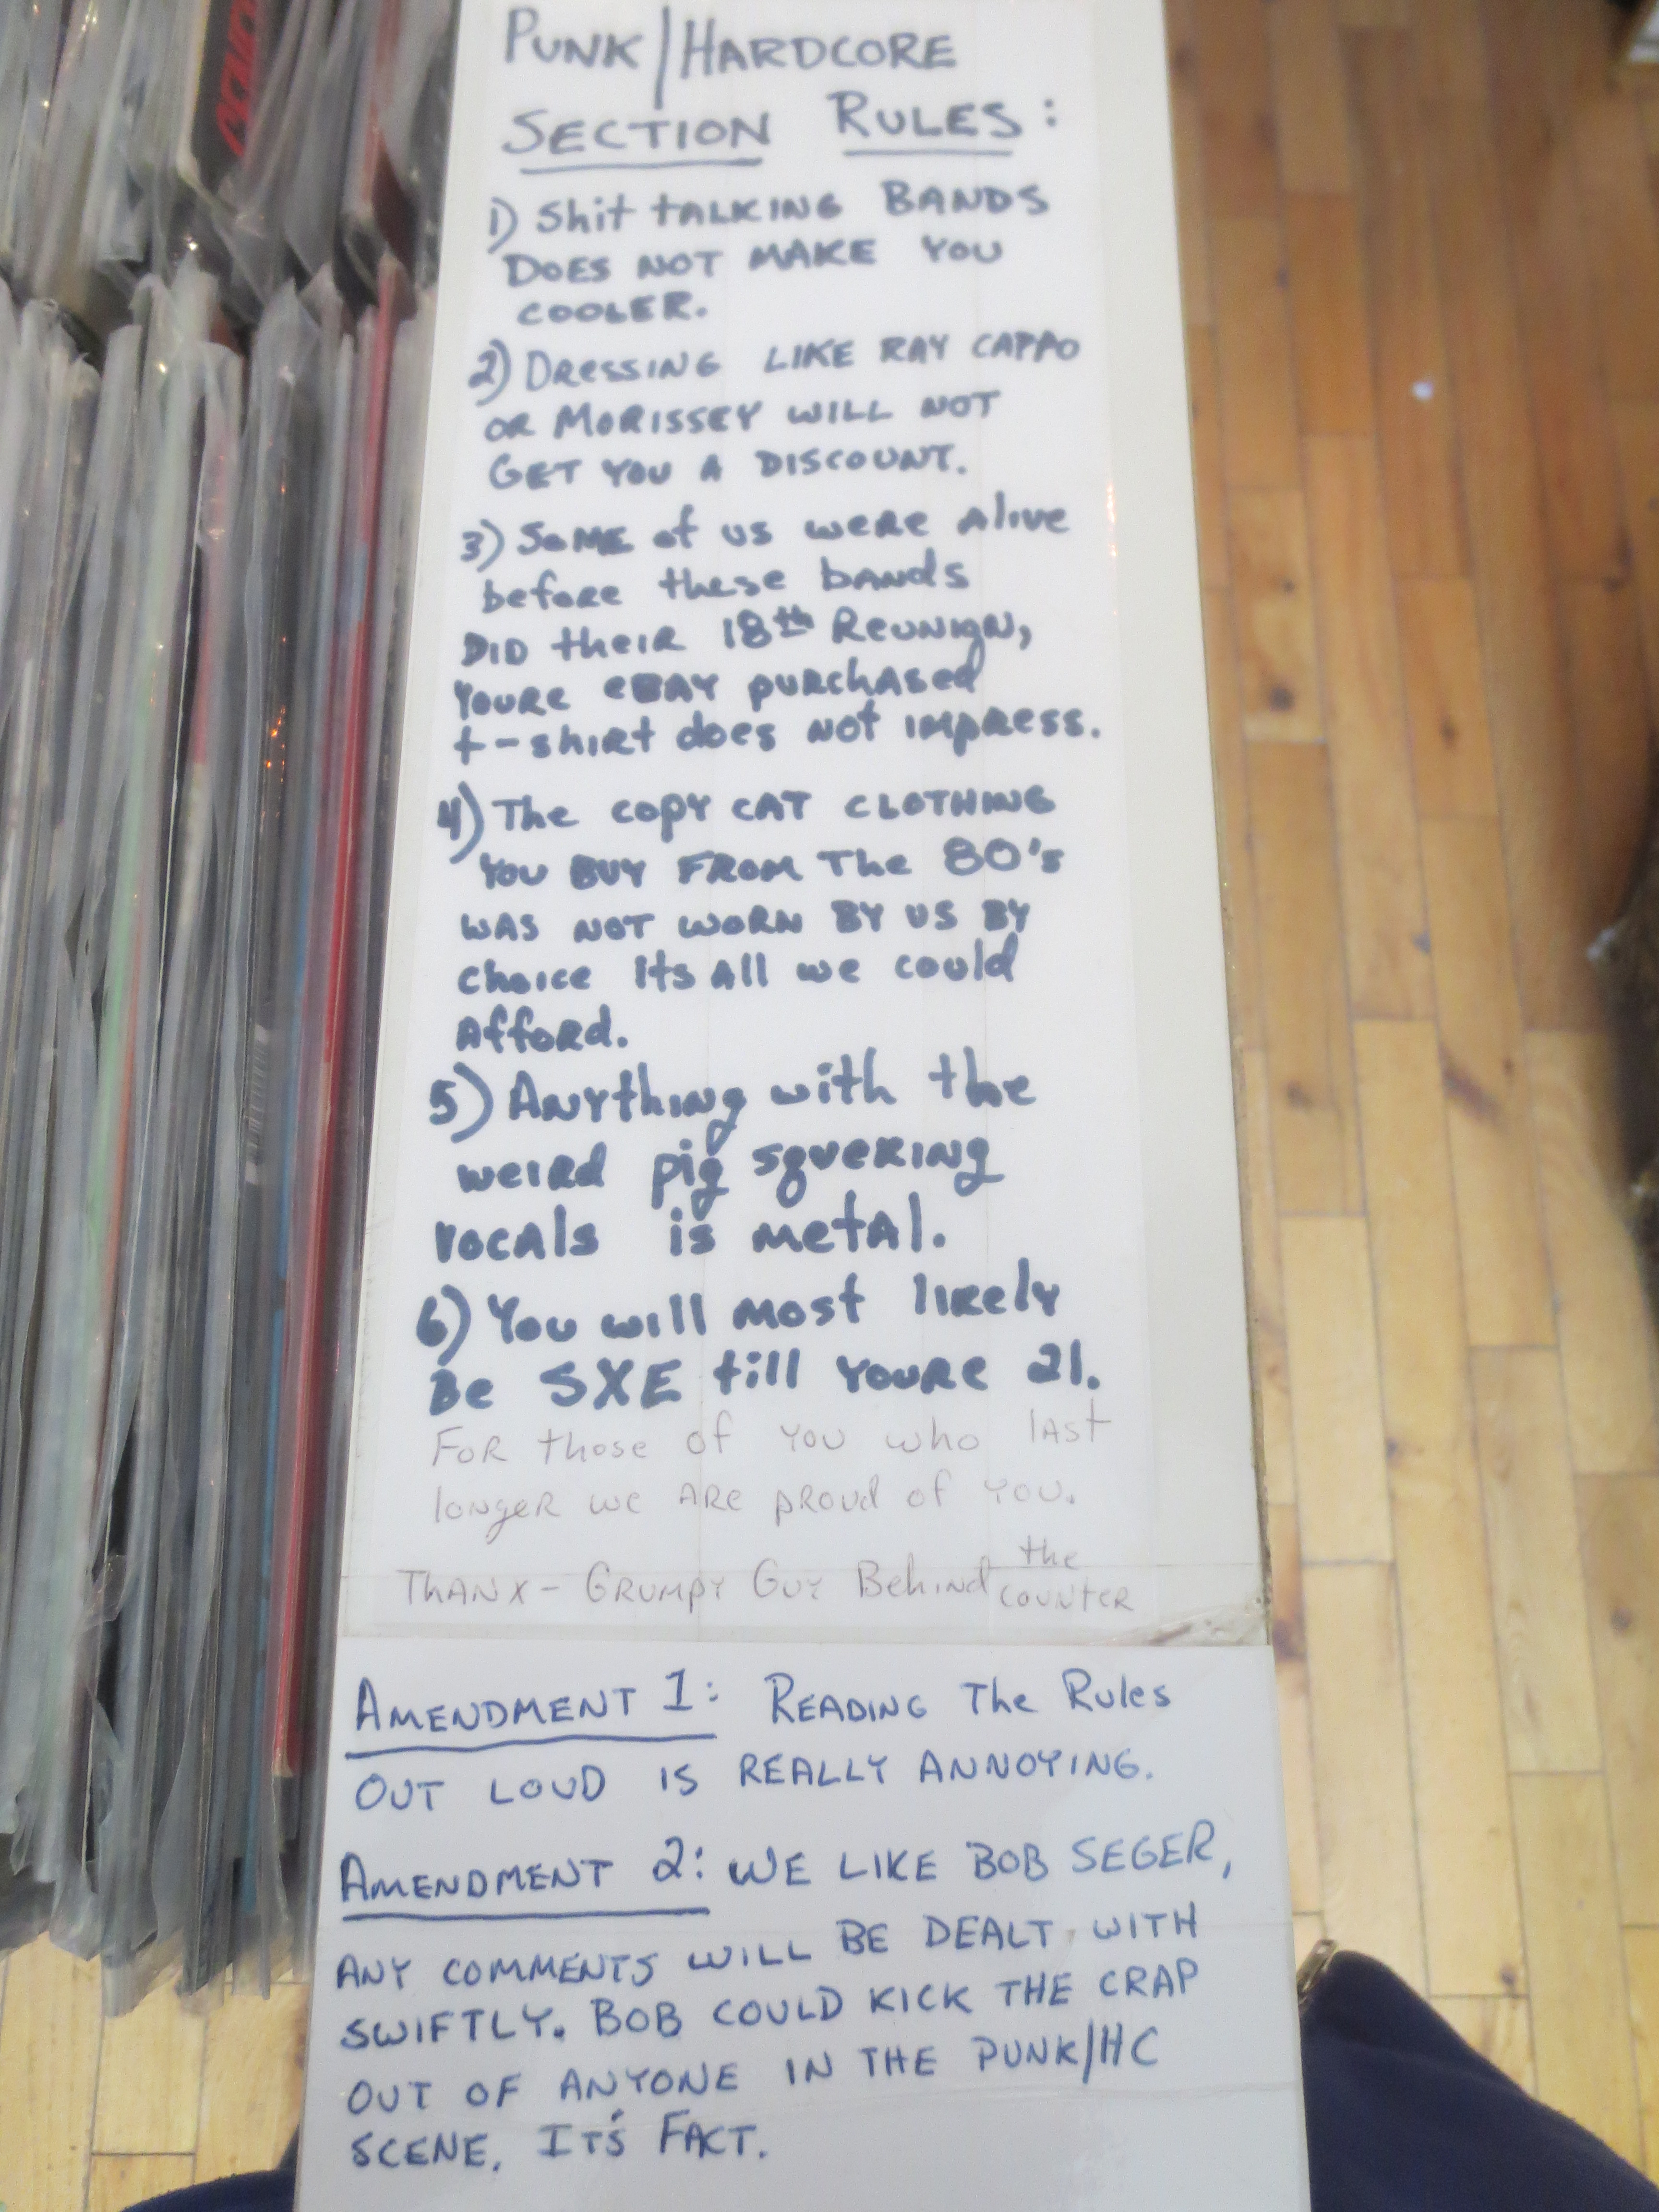 PUNK/HARDCORE
SECTION RULES:
1) Shit TALKING BANDS
DOES NOT MAKE YOU
COOLER.
2) DRESSING LIKE RAY CAPPO
OR MORISSEY WILL NOT
GET YOU A DISCOUNT.
3) SOME of us were Alive
before these bands
DID their 18th Reunion,
Youre eBAY purchased
t-shirt does not impress.
4) The copy CAT CLOTHING
YOU BUY FROM The 80's
WAS NOT WORN BY US BY
choice its all we could
Afford.
5) Anything with the
weird pig squeking
vocals is metal.
6) You will most likely
Be SXE till youre 21.
For those of you who last
longer we are proud of you.
THANX - GRUMPY GUY Behind the
counter
AMENDMENT 1: READING The Rules
OUT LOUD IS REALLY ANNOYING.
AMENDMENT 2: WE LIKE BOB SEGER,
ANY COMMENTS WILL BE DEALT WITH
SWIFTLY. BOB COULD KICK THE CRAP
OUT OF ANYONE IN THE PUNK/HC
SCENE. IT'S FACT.